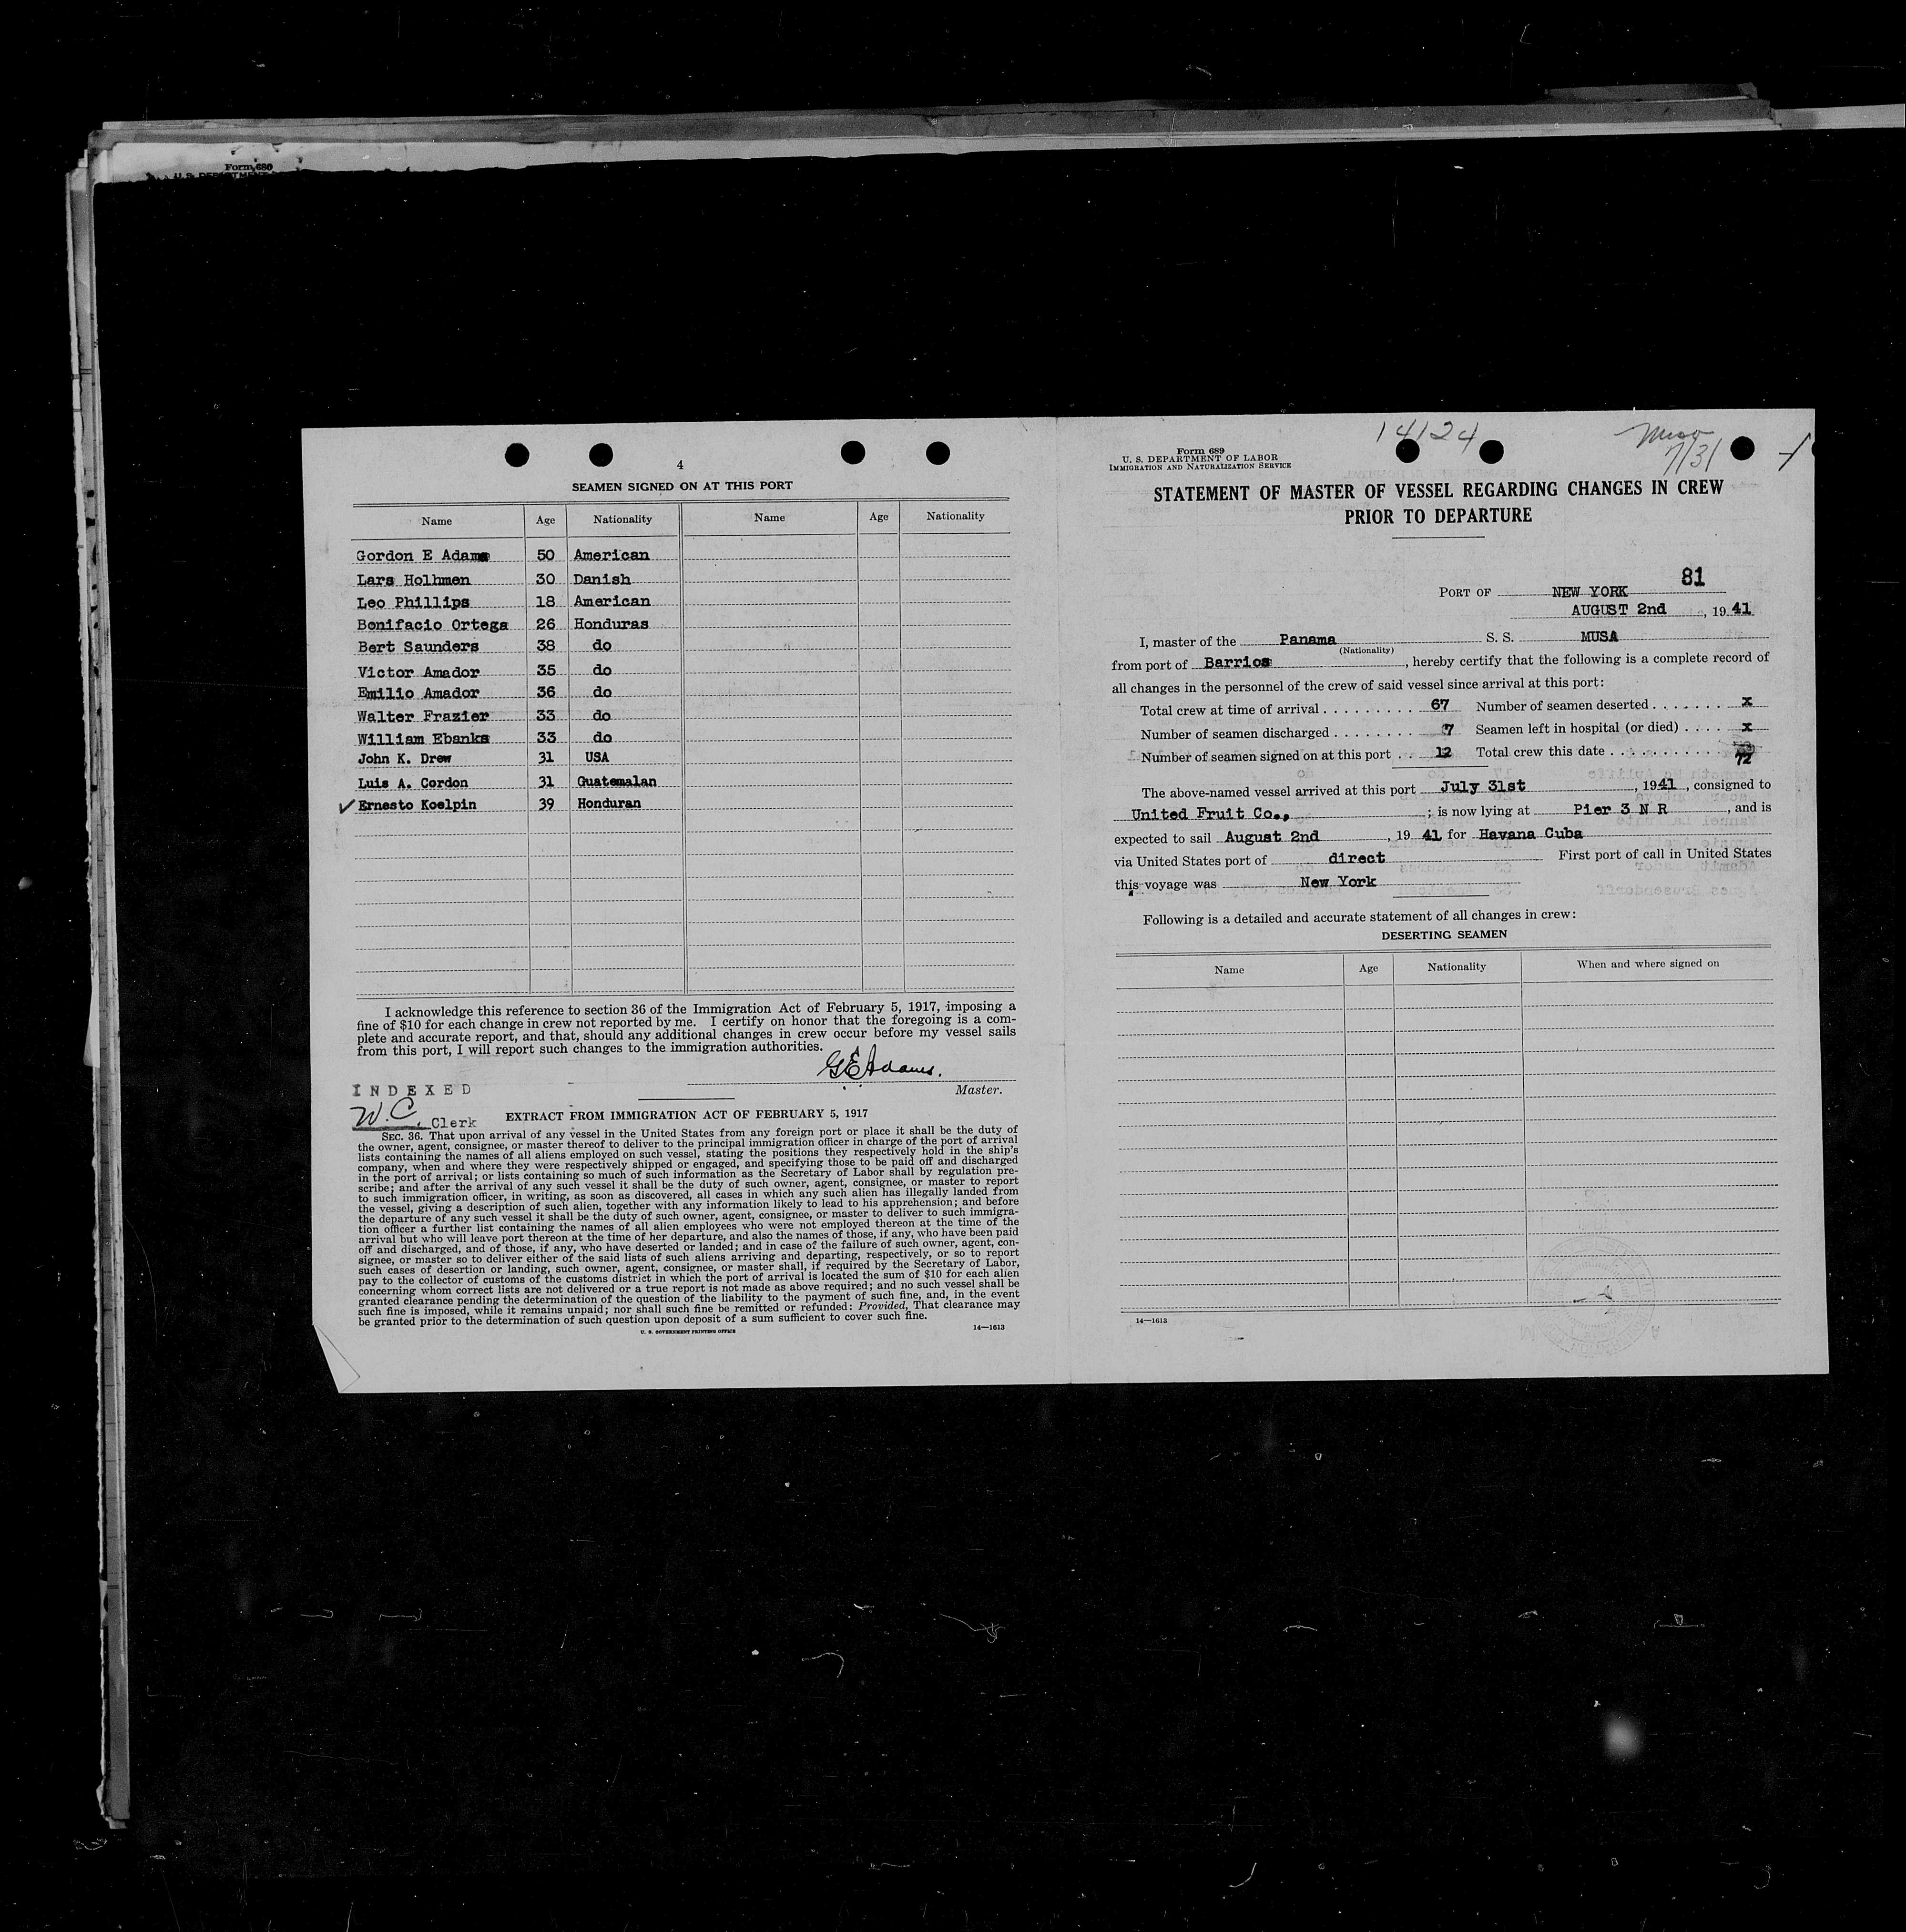 Form 689
4
SEAMEN SIGNED ON AT THIS PORT
Name Age Nationality Name Age Nationality
Gordon E Adams 50 American
Lars Holhmen 30 Danish
Leo Phillips 18 American
Bonifacio Ortega 26 Honduras
Bert Saunders 38 do
Victor Amador 35 do
Emilio Amador 36 do
Walter Frazier 33 do
William Ebanks 33 do
John K. Drew 31 USA
Luis A. Cordon 31 Guatemalan
✓ Ernesto Koelpin 39 Honduran
I acknowledge this reference to section 36 of the Immigration Act of February 5, 1917, imposing a
fine of $10 for each change in crew not reported by me. I certify on honor that the foregoing is a com-
plete and accurate report, and that, should any additional changes in crew occur before my vessel sails
from this port, I will report such changes to the immigration authorities.
G E Adams.
Master.
INDEXED
W. C. Clerk
EXTRACT FROM IMMIGRATION ACT OF FEBRUARY 5, 1917
SEC. 36. That upon arrival of any vessel in the United States from any foreign port or place it shall be the duty of
the owner, agent, consignee, or master thereof to deliver to the principal immigration officer in charge of the port of arrival
lists containing the names of all aliens employed on such vessel, stating the positions they respectively hold in the ship's
company, when and where they were respectively shipped or engaged, and specifying those to be paid off and discharged
in the port of arrival; or lists containing so much of such information as the Secretary of Labor shall by regulation pre-
scribe; and after the arrival of any such vessel it shall be the duty of such owner, agent, consignee, or master to report
to such immigration officer, in writing, as soon as discovered, all cases in which any such alien has illegally landed from
the vessel, giving a description of such alien, together with any information likely to lead to his apprehension; and before
the departure of any such vessel it shall be the duty of such owner, agent, consignee, or master to deliver to such immigra-
tion officer a further list containing the names of all alien employees who were not employed thereon at the time of the
arrival but who will leave port thereon at the time of her departure, and also the names of those, if any, who have been paid
off and discharged, and of those, if any, who have deserted or landed; and in case of the failure of such owner, agent, con-
signee, or master so to deliver either of the said lists of such aliens arriving and departing, respectively, or so to report
such cases of desertion or landing, such owner, agent, consignee, or master shall, if required by the Secretary of Labor,
pay to the collector of customs of the customs district in which the port of arrival is located the sum of $10 for each alien
concerning whom correct lists are not delivered or a true report is not made as above required; and no such vessel shall be
granted clearance pending the determination of the question of the liability to the payment of such fine, and, in the event
such fine is imposed, while it remains unpaid; nor shall such fine be remitted or refunded: Provided, That clearance may
be granted prior to the determination of such question upon deposit of a sum sufficient to cover such fine.
U. S. GOVERNMENT PRINTING OFFICE 14—1613
14124
Musa
7/31
Form 689
U. S. DEPARTMENT OF LABOR
IMMIGRATION AND NATURALIZATION SERVICE
STATEMENT OF MASTER OF VESSEL REGARDING CHANGES IN CREW
PRIOR TO DEPARTURE
81
PORT OF NEW YORK
AUGUST 2nd, 1941
I, master of the Panama S. S. MUSA
(Nationality)
from port of Barrios, hereby certify that the following is a complete record of
all changes in the personnel of the crew of said vessel since arrival at this port:
Total crew at time of arrival . . . . . . . . . 67 Number of seamen deserted . . . . . . . x
Number of seamen discharged . . . . . . . . 7 Seamen left in hospital (or died) . . . . x
Number of seamen signed on at this port . . 12 Total crew this date . . . . . . . . . . 72
The above-named vessel arrived at this port July 31st, 1941, consigned to
United Fruit Co.,; is now lying at Pier 3 N R, and is
expected to sail August 2nd, 19 41 for Havana Cuba
via United States port of direct First port of call in United States
this voyage was New York
Following is a detailed and accurate statement of all changes in crew:
DESERTING SEAMEN
Name Age Nationality When and where signed on
14—1613